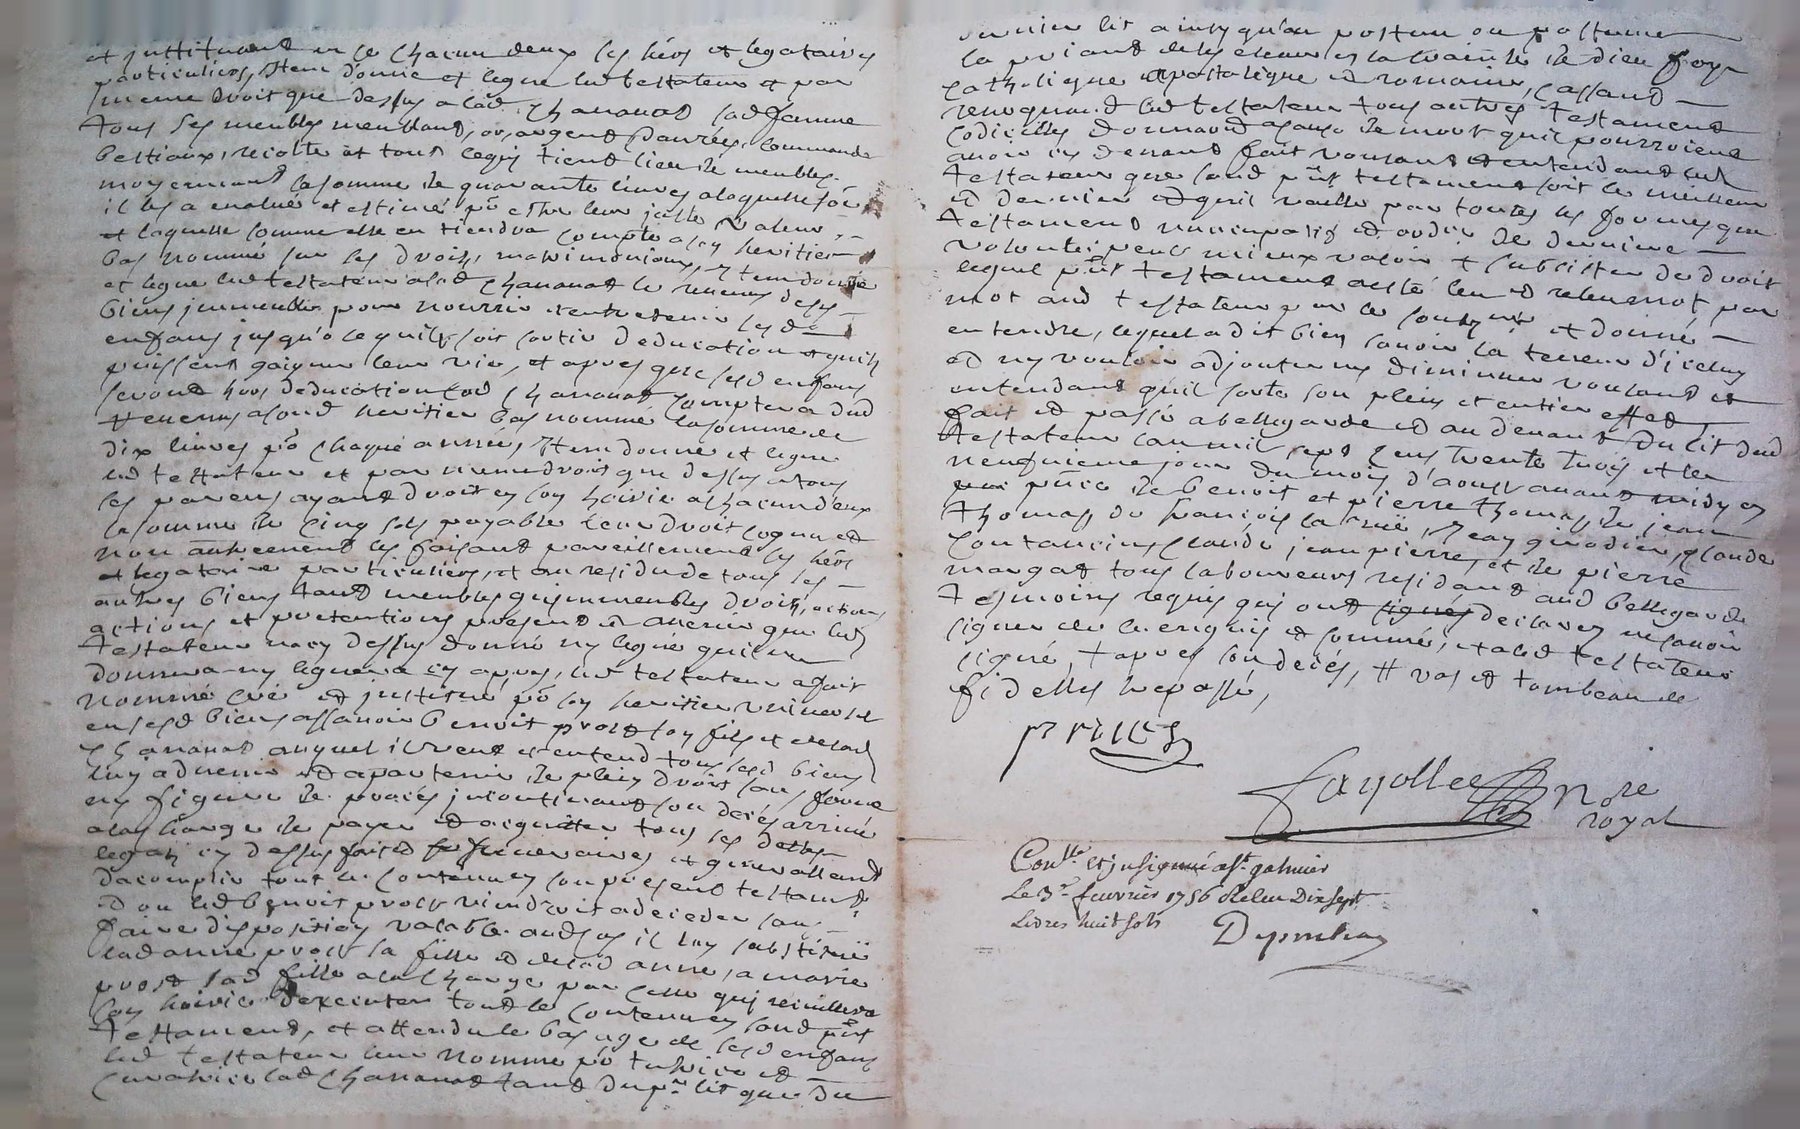 et instituant en ce chacun deux ses hers et legataires
particuliers, Item donne et legue led testateur et par
meme droit que dessus a lad Chananat sad femme
tous ses meubles meublant, or, argent, danrées, commande
bestiaux, recolte et tout ce qui tient lieu de meubles
moyennant la somme de quarante livres a laquelle some
il les a evalué et estimé po estre leur juste valeur,
et laquelle somme elle en tiendra compte a son heritier
bas nommé sur ses droits matrimoniaux, Item donne
et legue led testateur a lad Chananat les revenus de ses
biens immeubles pour nourrir entretenir lesd
enfans jusqu'a ce quils soit sortis deducation et quils
puissent gaigner leur vie, et apres que lesd enfans
seront hors deducation lad Chananat comptera dud
revenus a sond heritier bas nommé la somme de
dix livres po chaque année, Item donne et legue
led testateur et par meme droit que dessus a tous
ses parens ayant droit en son hoirie a chacun deux
la somme de cinq sols payable leur droit cognu et
non autrement les faisant pareillement ses hers
et legataire particuliers, et au residu de tous ses
autres biens tant meubles qu'immeubles droits, actions
et pretentions present et avenir que led
testateur na cy dessus donné ny legué qu'il ne
donnera ny leguera cy apres, led testateur a fait
nommé créé et institué po son heritier universel
en sesd biens assavoir benoit prost son fils et de lad
Chananat auquel il veut et entend tous sesd biens
luy advenir et apartenir de plein droit sans forme
ny figure de procés incontinant son decés arrivé
a la charge de payer et acquitter tous ses dettes
legats cy dessus faits et funeraires et generallement
dacomplir tout le contenu en son present testament
et ou led benoit prost viendroit a deceder sans
faire disposition valable aud cas il luy substitue
lad anne prost sa fille et de lad anne, a marie
prost sad fille a la charge par celle qui recuillera
son hoirie dexecuter tout le contenu en sond pnt
testament, et attendu le bas age de sesd enfans
led testateur leur nomme po tutrice et
curatrice lad Chananat tant du pr lit que du
dernier lit ainsy qu'au postume ou postumes
la priant de les elever en la crainte de dieu foy
catholique apostolique et romaine, cassant
revoquant led testateur tous autres testament
codicilles donnation a cause de mort qu'il pourroient
avoir cy devant fait voulant et entendant led
testateur que sond pnt testament soit le meilleur
et dernier et qu'il vaille par toutes les formes que
testament nuncupatif et ordre de derniere
volonté peut mieux valoir et subsister de droit
lequel pnt testament a esté leu et releu mot par
mot aud testateur par le soubsigné et donné
entendre, lequel a dit bien savoir la teneur d'iceluy
et ny vouloir adjouter ny diminuer voulant et
entendant quil sorte son plein et entier effet
fait et passé a bellegarde et au devant du lit dud
testateur lan mil sept cens trente trois et le
neufvieme jour du mois d'aoust avant midy en
presence de benoit et pierre thomas, de jean
thomas, de francois la rue, Jean girodier, claude
Coutancin, claude jean pierre, et de pierre
margat tous laboureurs residant aud bellegarde
tesmoins requis qui ont signés declarez ne savoir
signer de ce enquis et sommé, et a led testateur
signé, + apres son decés, # vas et tombeau de
fidelles trepassé,
prost
fayolle nore
royal
Conlle et insigenué a St. galmier
Le 3e. feuvrier 1756 Relcu Dix sept
Livres huit sols